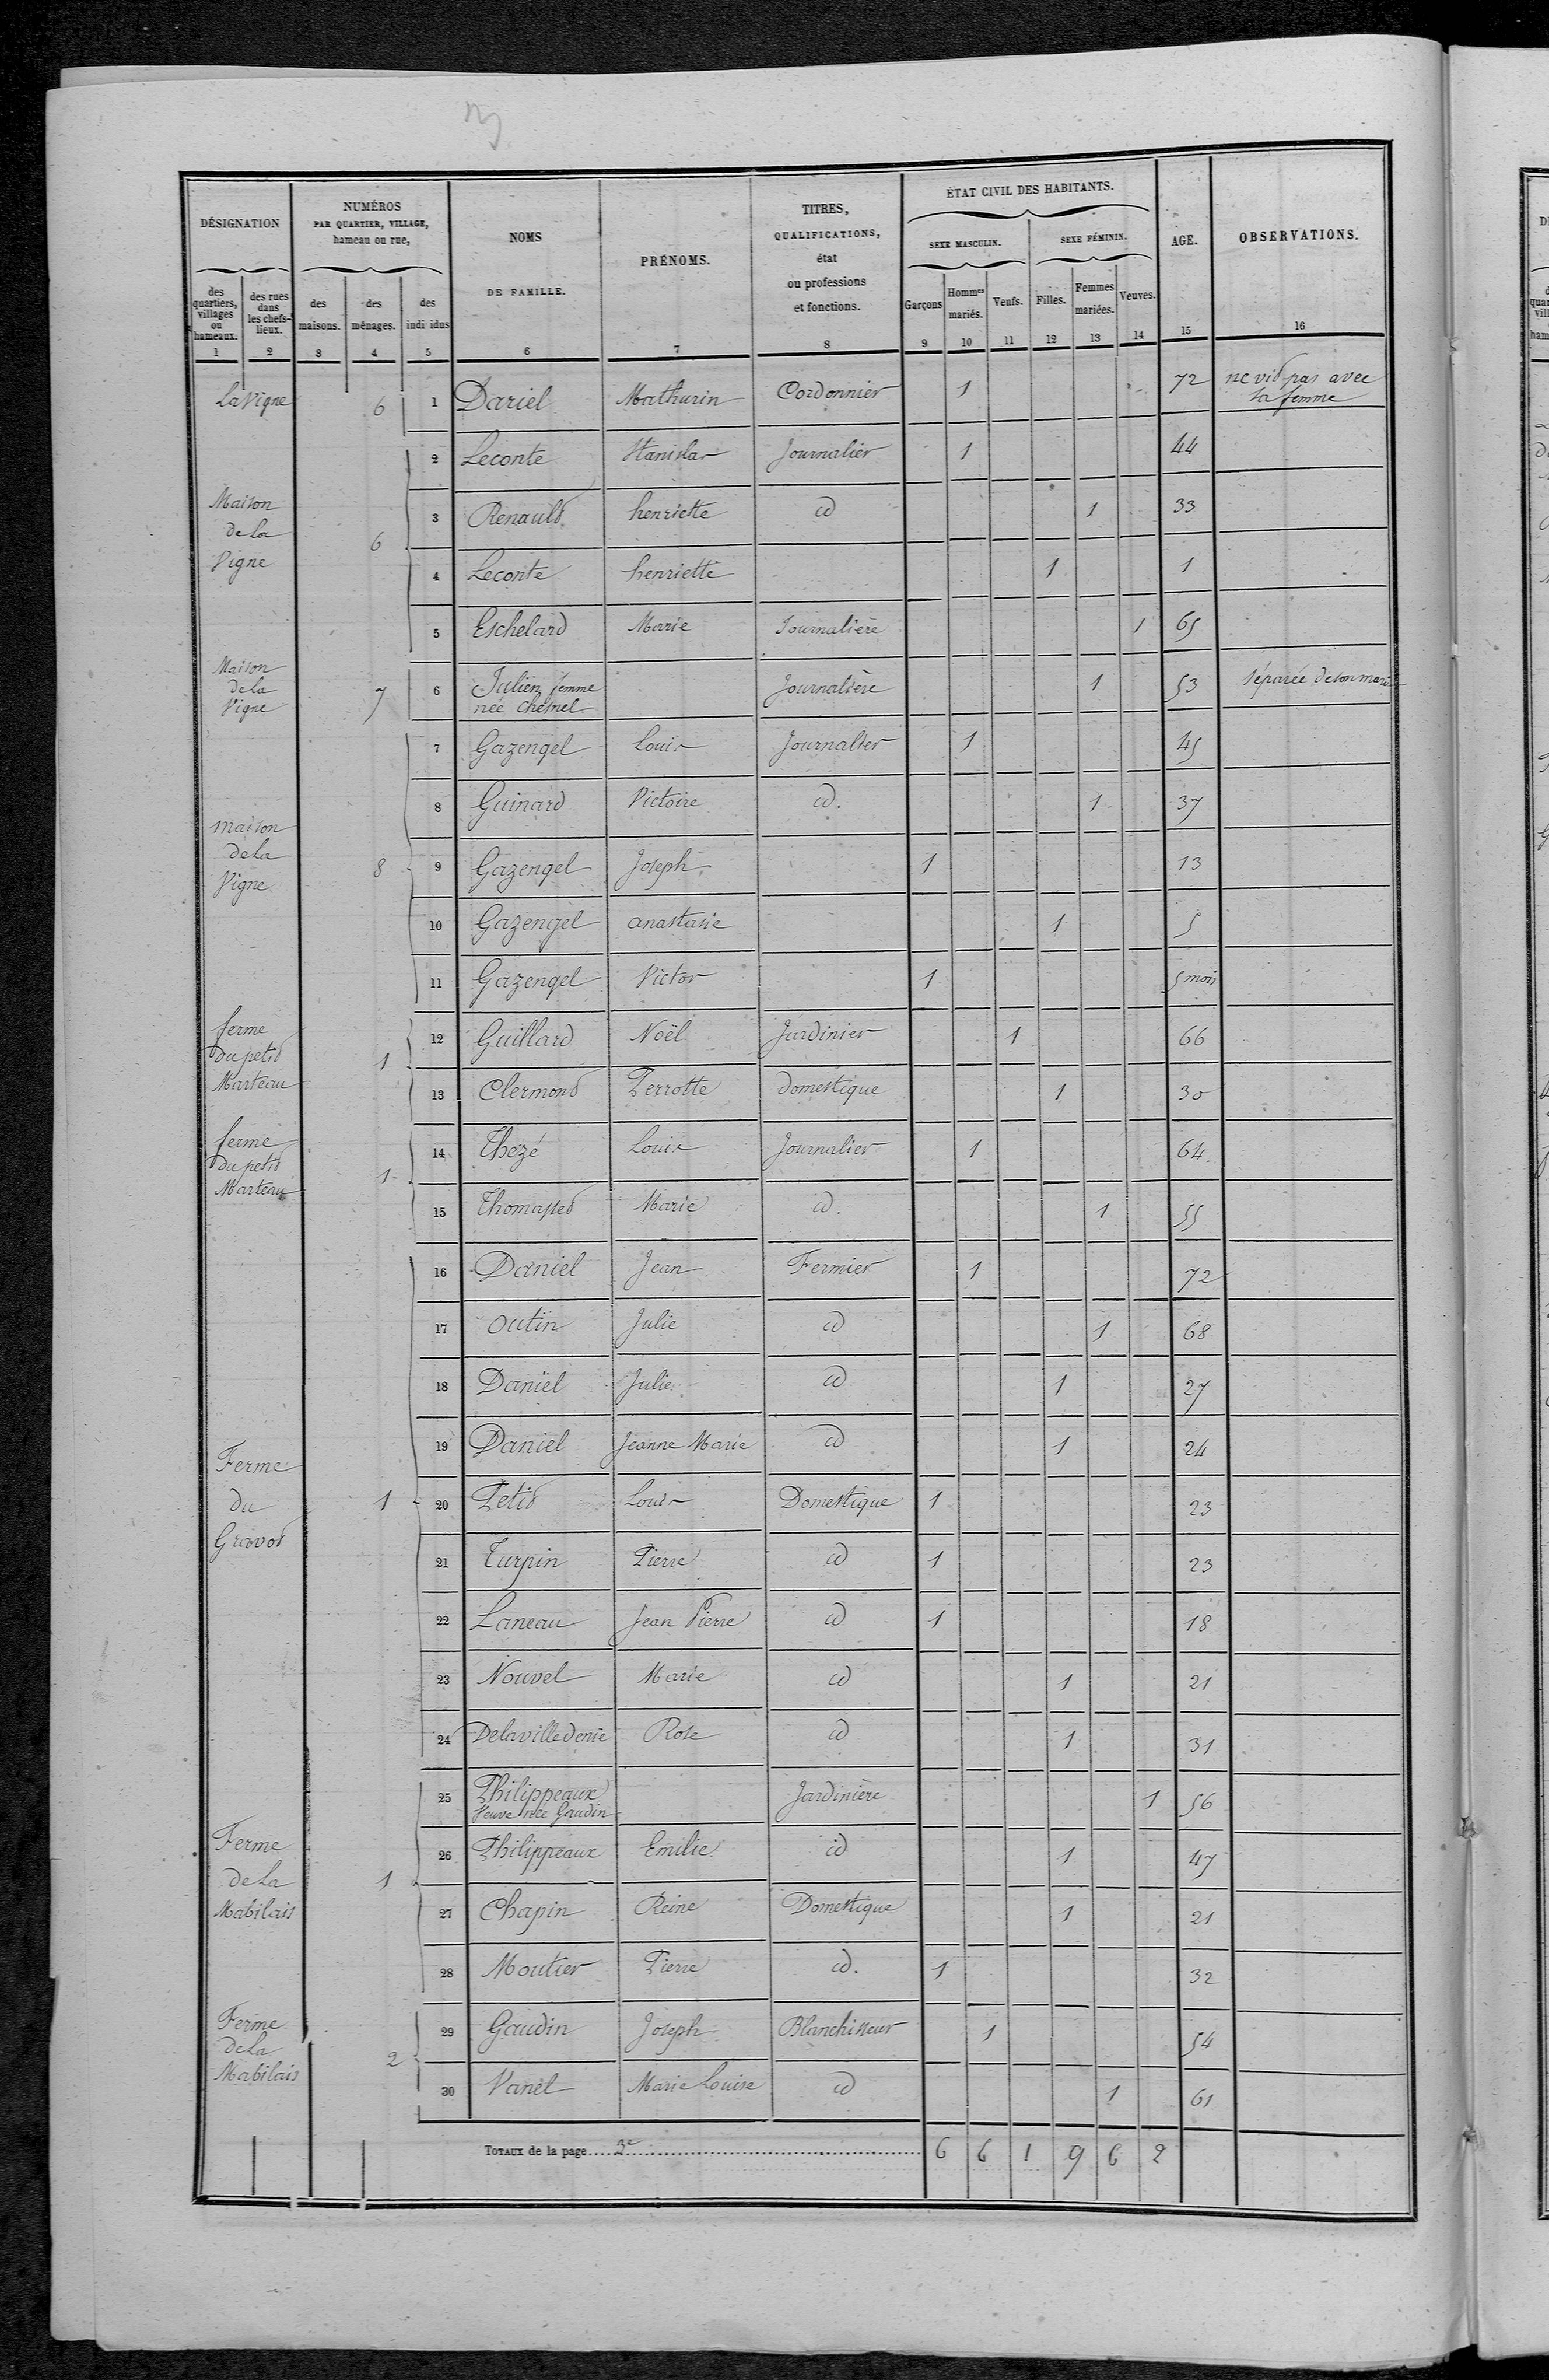 3
DÉSIGNATION
NUMÉROS
PAR QUARTIER, VILLAGE,
hameau ou rue,
NOMS
DE FAMILLE.
PRÉNOMS.
TITRES,
QUALIFICATIONS,
état
ou professions
et fonctions.
ÉTAT CIVIL DES HABITANTS.
SEXE MASCULIN.
SEXE FÉMININ.
AGE.
OBSERVATIONS.
des quartiers, villages ou hameaux.
des rues dans les chefs-lieux.
des maisons.
des ménages.
des indi idus
Garçons
Hommes mariés.
Veufs.
Filles.
Femmes mariées.
Veuves.
1 2 3 4 5 6 7 8 9 10 11 12 13 14 15 16
La Vigne 6 1 Dariel Mathurin Cordonnier 1 72 ne vit pas avec
sa femme
2 Leconte Stanislas Journalier 1 44
Maison
de La
Vigne
6
3 Renault henriette id 1 33
4 Leconte henriette 1 1
5 Eschelard Marie Journalière 1 65
Maison
de la
Vigne
7
6 Julien femme
née Chesnel
Journalière 1 53 séparée de son mari
7 Gazengel Louis Journalier 1 45
8 Guinard Victoire id. 1 37
maison
de La
Vigne
8
9 Gazengel Joseph 1 13
10 Gazengel anastasie 1 5
11 Gazengel Victor 1 5 mois
ferme
du petit
Marteau
1
12 Guillard Noël Jardinier 1 66
13 Clermont Perrotte domestique 1 30
ferme
du petit
Marteau
1
14 Thézé Louis Journalier 1 64
15 Thomasset Marie id. 1 55
16 Daniel Jean Fermier 1 72
17 Outin Julie id 1 68
18 Daniel Julie id 1 27
19 Daniel Jeanne Marie id 1 24
Ferme
du
Gravot
1
20 Petit Louis Domestique 1 23
21 Turpin Pierre id 1 23
22 Laneau Jean Pierre id 1 18
23 Nouvel Marie id 1 21
24 Delavilledenie Rose id 1 31
25 Philippeaux
Veuve née Gaudin
Jardinière 1 56
Ferme
de La
Mabilais
1
26 Philippeaux Emilie id 1 47
27 Chapin Reine Domestique 1 21
28 Moutier Pierre id. 1 32
Ferme
de La
Mabilais
2
29 Gaudin Joseph Blanchisseur 1 54
30 Vanel Marie Louise id 1 61
TOTAUX de la page 3e 6 6 1 9 6 2